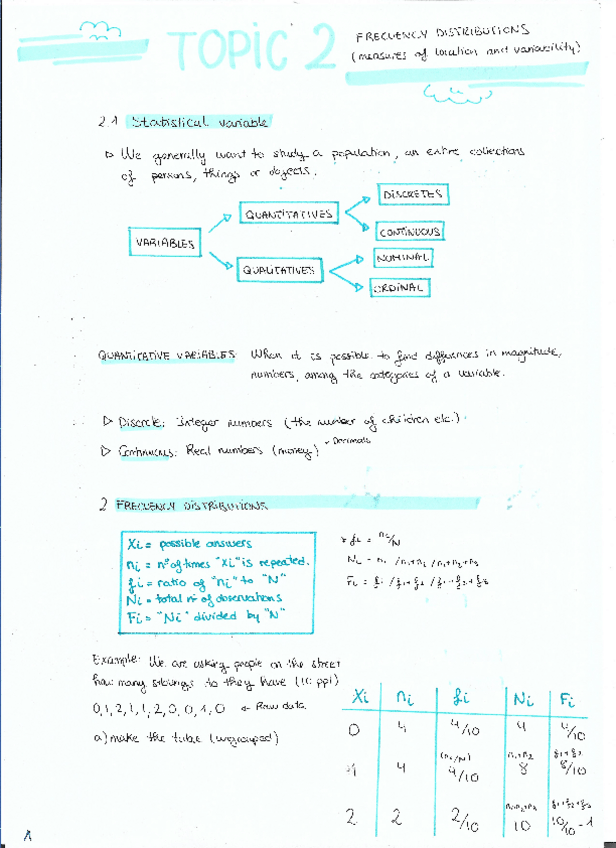 TOPIC 2
FRECUENCY DISTRIBUTIONS
(measures of location and variability)
2.1 Statistical variable
▷ We generally want to study a population, an entire collections
of persons, things or objects.
VARIABLES
QUANTITATIVES
QUALITATIVES
DISCRETES
CONTINUOUS
NOMINAL
ORDINAL
QUANTITATIVE VARIABLES When it is possible to find differences in magnitude,
numbers, among the categories of a variable.
▷ Discrete: Integer numbers (the number of children etc.)
▷ Continuous: Real numbers (money) Decimals
2 FRECUENCY DISTRIBUTIONS
Xi = possible answers
ni = nº of times "Xi" is repeated.
fi = ratio of "ni" to "N"
Ni = total nº of observations
Fi = "Ni" divided by "N"
* fi = ni/N
Ni = n1 / n1+n2 / n1+n2+n3
Fi = f1 / f1+f2 / f1+f2+f3
Example: We are asking people on the street
how many siblings to they have (10 ppl)
0, 1, 2, 1, 1, 2, 0, 0, 1, 0 Raw data
a) make the table (ungrouped)
Xi ni fi Ni Fi
0 4 4/10 4 4/10
(ni/N) n1+n2 f1+f2
1 4 4/10 8 8/10
n1+n2+n3 f1+f2+f3
2 2 2/10 10 10/10 = 1